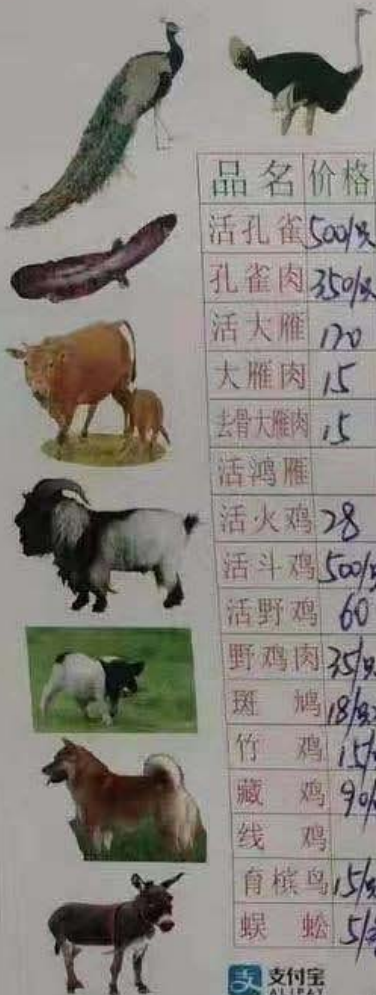 品名 价格
活孔雀 500/只
孔雀肉 350/只
活大雁 120
大雁肉 15
去骨大雁肉 15
活鸿雁
活火鸡 28
活斗鸡 500/只
活野鸡 60
野鸡肉 35/只
斑鸠 18/只
竹鸡 15/
藏鸡 90/
线鸡
育槟鸟 15/只
蜈蚣 5/
支付宝
ALIPAY